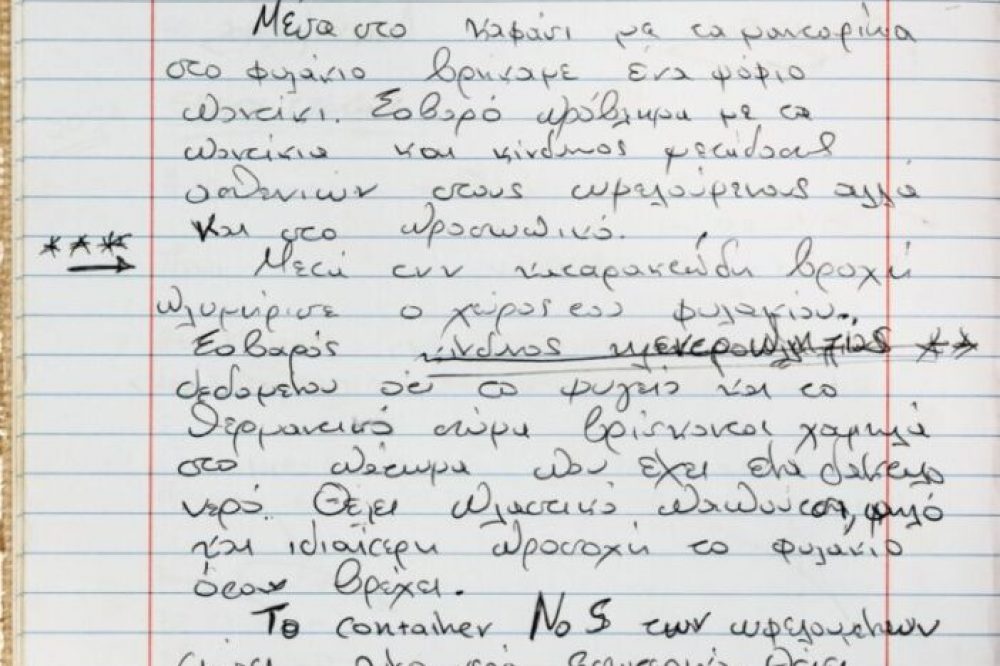 Μέσα στο καφάσι με τα μανταρίνια
στο φυλάκιο βρήκαμε ένα ψόφιο
ποντίκι. Σοβαρό πρόβλημα με τα
ποντίκια και κίνδυνος μετάδοσης
ασθενιών στους ωφελούμενους αλλά
και στο προσωπικό.
*** → Μετά την καταρακτώδη βροχή
πλυμμήρισε ο χώρος του φυλακίου..
Σοβαρός κίνδυνος ηλεκτροπληξίας **
δεδομένου ότι το ψυγείο και το
θερμαντικό σώμα βρίσκονται χαμηλά
στο πάτωμα που έχει ένα δάκτυλο
νερό. Θέλει πλαστικό παπούτσι, ψηλό
και ιδιαίτερη προσοχή το φυλάκιο
όταν βρέχει.
Το container No 5 των ωφελουμένων